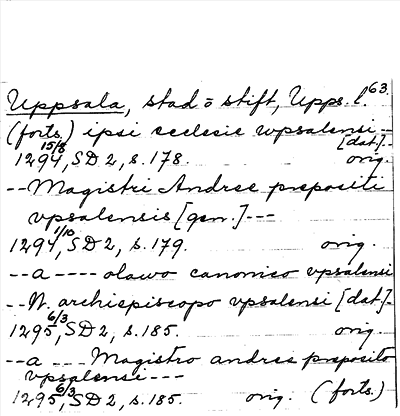 63.
Uppsala, stad o stift, Upps. l.
(forts.) ipsi ecclesie vpsalensi --
[dat].-
1294 15/8, SD 2, s. 178. orig.
-- Magistri Andree prepositi
vpsalensis [gen.] ---
1294 1/10, SD 2, s. 179. orig.
-- a ---- olawo canonico vpsalensi
-- N. archiepiscopo vpsalensi [dat]-
1295 6/3, SD 2, s. 185. orig.
-- a --- Magistro andrea preposito
vpsalensi ---
1295 6/3, SD 2, s. 185. orig. (forts.)